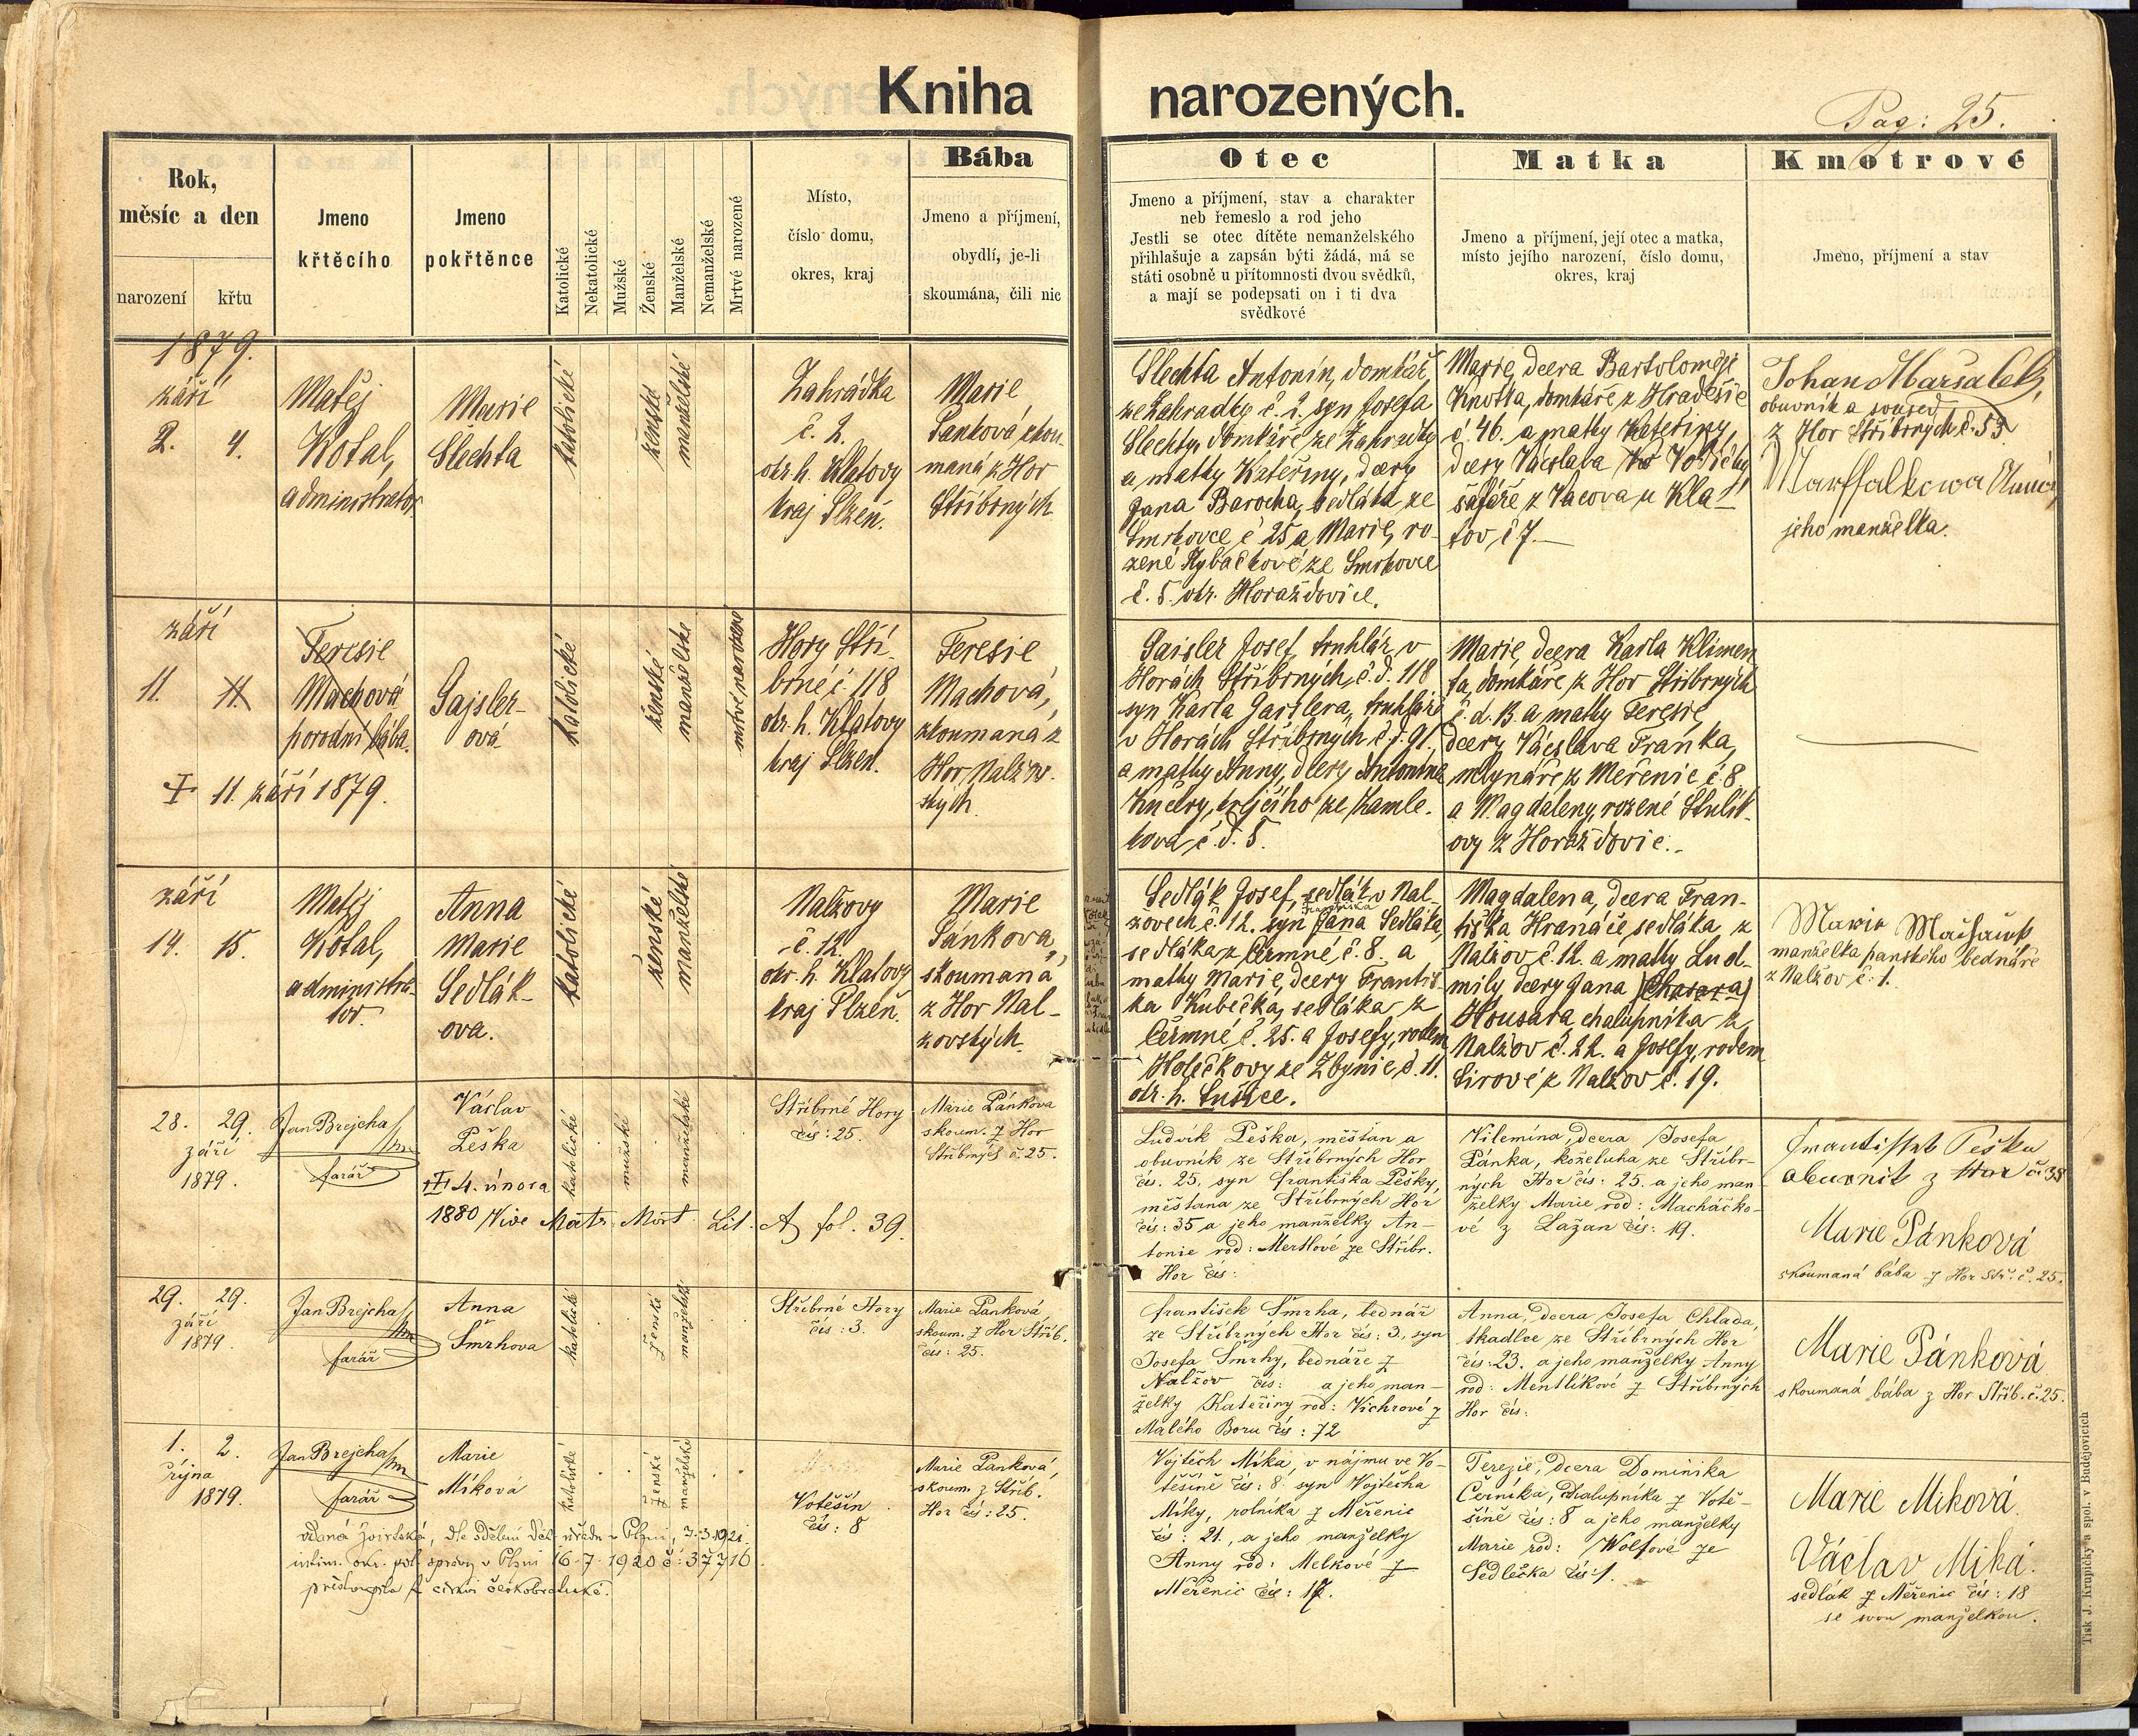 Kniha narozených.
Pag: 25.
Rok,
měsíc a den
narození
křtu
Jmeno
křtěcího
Jmeno
pokřtěnce
Katolické
Nekatolické
Mužské
Ženské
Manželské
Nemanželské
Mrtvé narozené
Místo,
číslo domu,
okres, kraj
Bába
Jmeno a příjmení,
obydlí, je-li
skoumána, čili nic
Otec
Jmeno a příjmení, stav a charakter
neb řemeslo a rod jeho
Jestli se otec dítěte nemanželského
přihlašuje a zapsán býti žádá, má se
státi osobně u přítomnosti dvou svědků,
a mají se podepsati on i ti dva
svědkové
Matka
Jmeno a příjmení, její otec a matka,
místo jejího narození, číslo domu,
okres, kraj
Kmotrové
Jmeno, příjmení a stav
1879.
září
2. 4.
Matěj
Kotal,
administrator
Marie
Šlechta
katolické
ženské
manželské
Zahrádka
č. 2.
okr. h. Klatovy
kraj Plzeň.
Marie
Panková skou-
maná z Hor
Stříbrných
Šlechta Antonín, domkář
ze Zahradky č. 2. syn Josefa
Šlechty, domkáře ze Zahradky
a matky Kateřiny, dcery
Jana Barocha, sedláka ze
Smrkovce č 25 a Marie, ro-
zené Rybáčkové ze Smrkovce
č. 5. okr. Horažďovice.
Marie, dcera Bartoloměje
Knotka, domkáře z Hradešic
č. 46. a matky Kateřiny,
dcery Václava Vodičky
šafáře z Vacova u Kla-
tov č 7.
Johan Maršalek,
obuvník a soused
z Hor Stříbrných č. 53.
Marssalkowa Anna
jeho manželka.
září
11. 11.
Teresie
Machová
porodní bába.
† 11. září 1879.
Gajsler-
ová
katolické
ženské
manželské
mrtvé narozené
Hory Stří-
brné č 118
okr. h. Klatovy
kraj Plzeň.
Teresie
Machová,
zkoumaná z
Hor Nalžov-
ských.
Gaisler Josef, truhlář v
Horách Stříbrných č. d. 118
syn Karla Gaislera, truhláře
v Horách Stříbrných č. d. 91.
a matky Anny, dcery Antonína
Kučery, krejčího ze Zamle-
kova č. d. 5.
Marie, dcera Karla Klimen-
ta, domkáře z Hor Stříbrných
č. d. 13. a matky Teresie,
dcery Václava Franka,
mlynáře z Měřenic č. 8
a Magdaleny, rozené Štulík-
ovy z Horažďovic.
září
14. 15.
Matěj
Kotal,
administra-
tor.
Anna
Marie
Sedlák-
ova.
katolické
ženské
manželské
Nalžovy
č. 12.
okr. h. Klatovy
kraj Plzeň.
Marie
Pánkova,
skoumaná
z Hor Nal-
žovských.
Sedlák Josef, sedlák v Nal-
Františka
žovech č. 12. syn Jana Sedláka,
sedláka z Čermné č. 8., a
matky Marie, dcery Františ-
ka Kubíčka, sedláka z
Čermné č. 25. a Josefy, rodem
Holečkovy ze Zbynic č. 11.
okr. h. Sušice.
Magdalena, dcera Fran-
tiška Hranáče, sedláka z
Nalžov č. 12. a matky Lud-
mily dcery Jana
Housara, chalupníka z
Nalžov č. 22. a Josefy, rodem
Sirové z Nalžov č. 19.
manželka panského bednáře
z Nalžov č. 1.
28. 29.
září
1879.
Jan Brejcha
farář
Václav
Peška
† 4. února
1880 Vide Matr. Mort. Lit. A fol. 39.
katolické
mužské
manželské
Stříbrné Hory
čís: 25.
Marie Pánkova
skoum. z Hor
Stříbrných č. 25.
Ludvík Peška, měšťan a
obuvník ze Stříbrných Hor
čís. 25, syn Františka Pešky,
měšťana ze Stříbrných Hor
čís: 35 a jeho manželky An-
tonie rod: Mertlové ze Stříbr.
Hor čís:
Vilemína, dcera Josefa
Pánka, koželuha ze Stříbr-
ných Hor čís: 25. a jeho man-
želky Marie rod: Macháčko-
vé z Lažan čís: 19.
Frantissek Peška
obuvnik z Hor č. 38
Marie Pánková
skoumaná bába z Hor Stř. č. 25.
29. 29.
září
1879.
Jan Brejcha
farář
Anna
Šmrhova
katolické
ženské
manželské
Stříbrné Hory
čís: 3.
Marie Panková
skoum. z Hor Stříb.
čís: 25.
František Šmrha, bednář
ze Stříbrných Hor čís: 3, syn
Josefa Šmrhy, bednáře z
Nalžov čís: a jeho man-
želky Kateřiny rod: Vichrové z
Malého Boru čís: 72
Anna, dcera Josefa Chlada,
tkadlce ze Stříbrných Hor
čís: 23. a jeho manželky Anny
rod: Mentlíkové z Stříbrných
Hor čís:
Marie Pánková
skoumaná bába z Hor Stříb. č. 25.
1. 2.
října
1879.
Jan Brejcha
farář
Marie
Míková
katolické
ženské
manželské
Votěšín
čís: 8
Marie Panková,
skoum. z Stříb.
Hor čís: 25.
Vojtěch Míka, v nájmu ve Vo-
těšíně čís: 8 syn Vojtěcha
Míky, rolníka z Měřenic
čís: 21., a jeho manželky
Anny rod: Melkové z
Měřenic čís: 17.
Terezie, dcera Dominika
Černíka, chalupníka z Votě-
šíně čís: 8 a jeho manželky
Marie rod: Wolfové ze
Sedlečka čís: 1.
Marie Miková.
Václav Miká.
sedlák z Měřenic čís: 18
se svou manželkou.
vdaná dle sdělení Děk. úřadu v Plzni, 7. 3. 1921.
intim. okr. pol. správy v Plzni 16. 7. 1920 č: 37716
přistoupila k církvi českobratrské.
Tisk J. Krupičky a spol. v Budějovicích